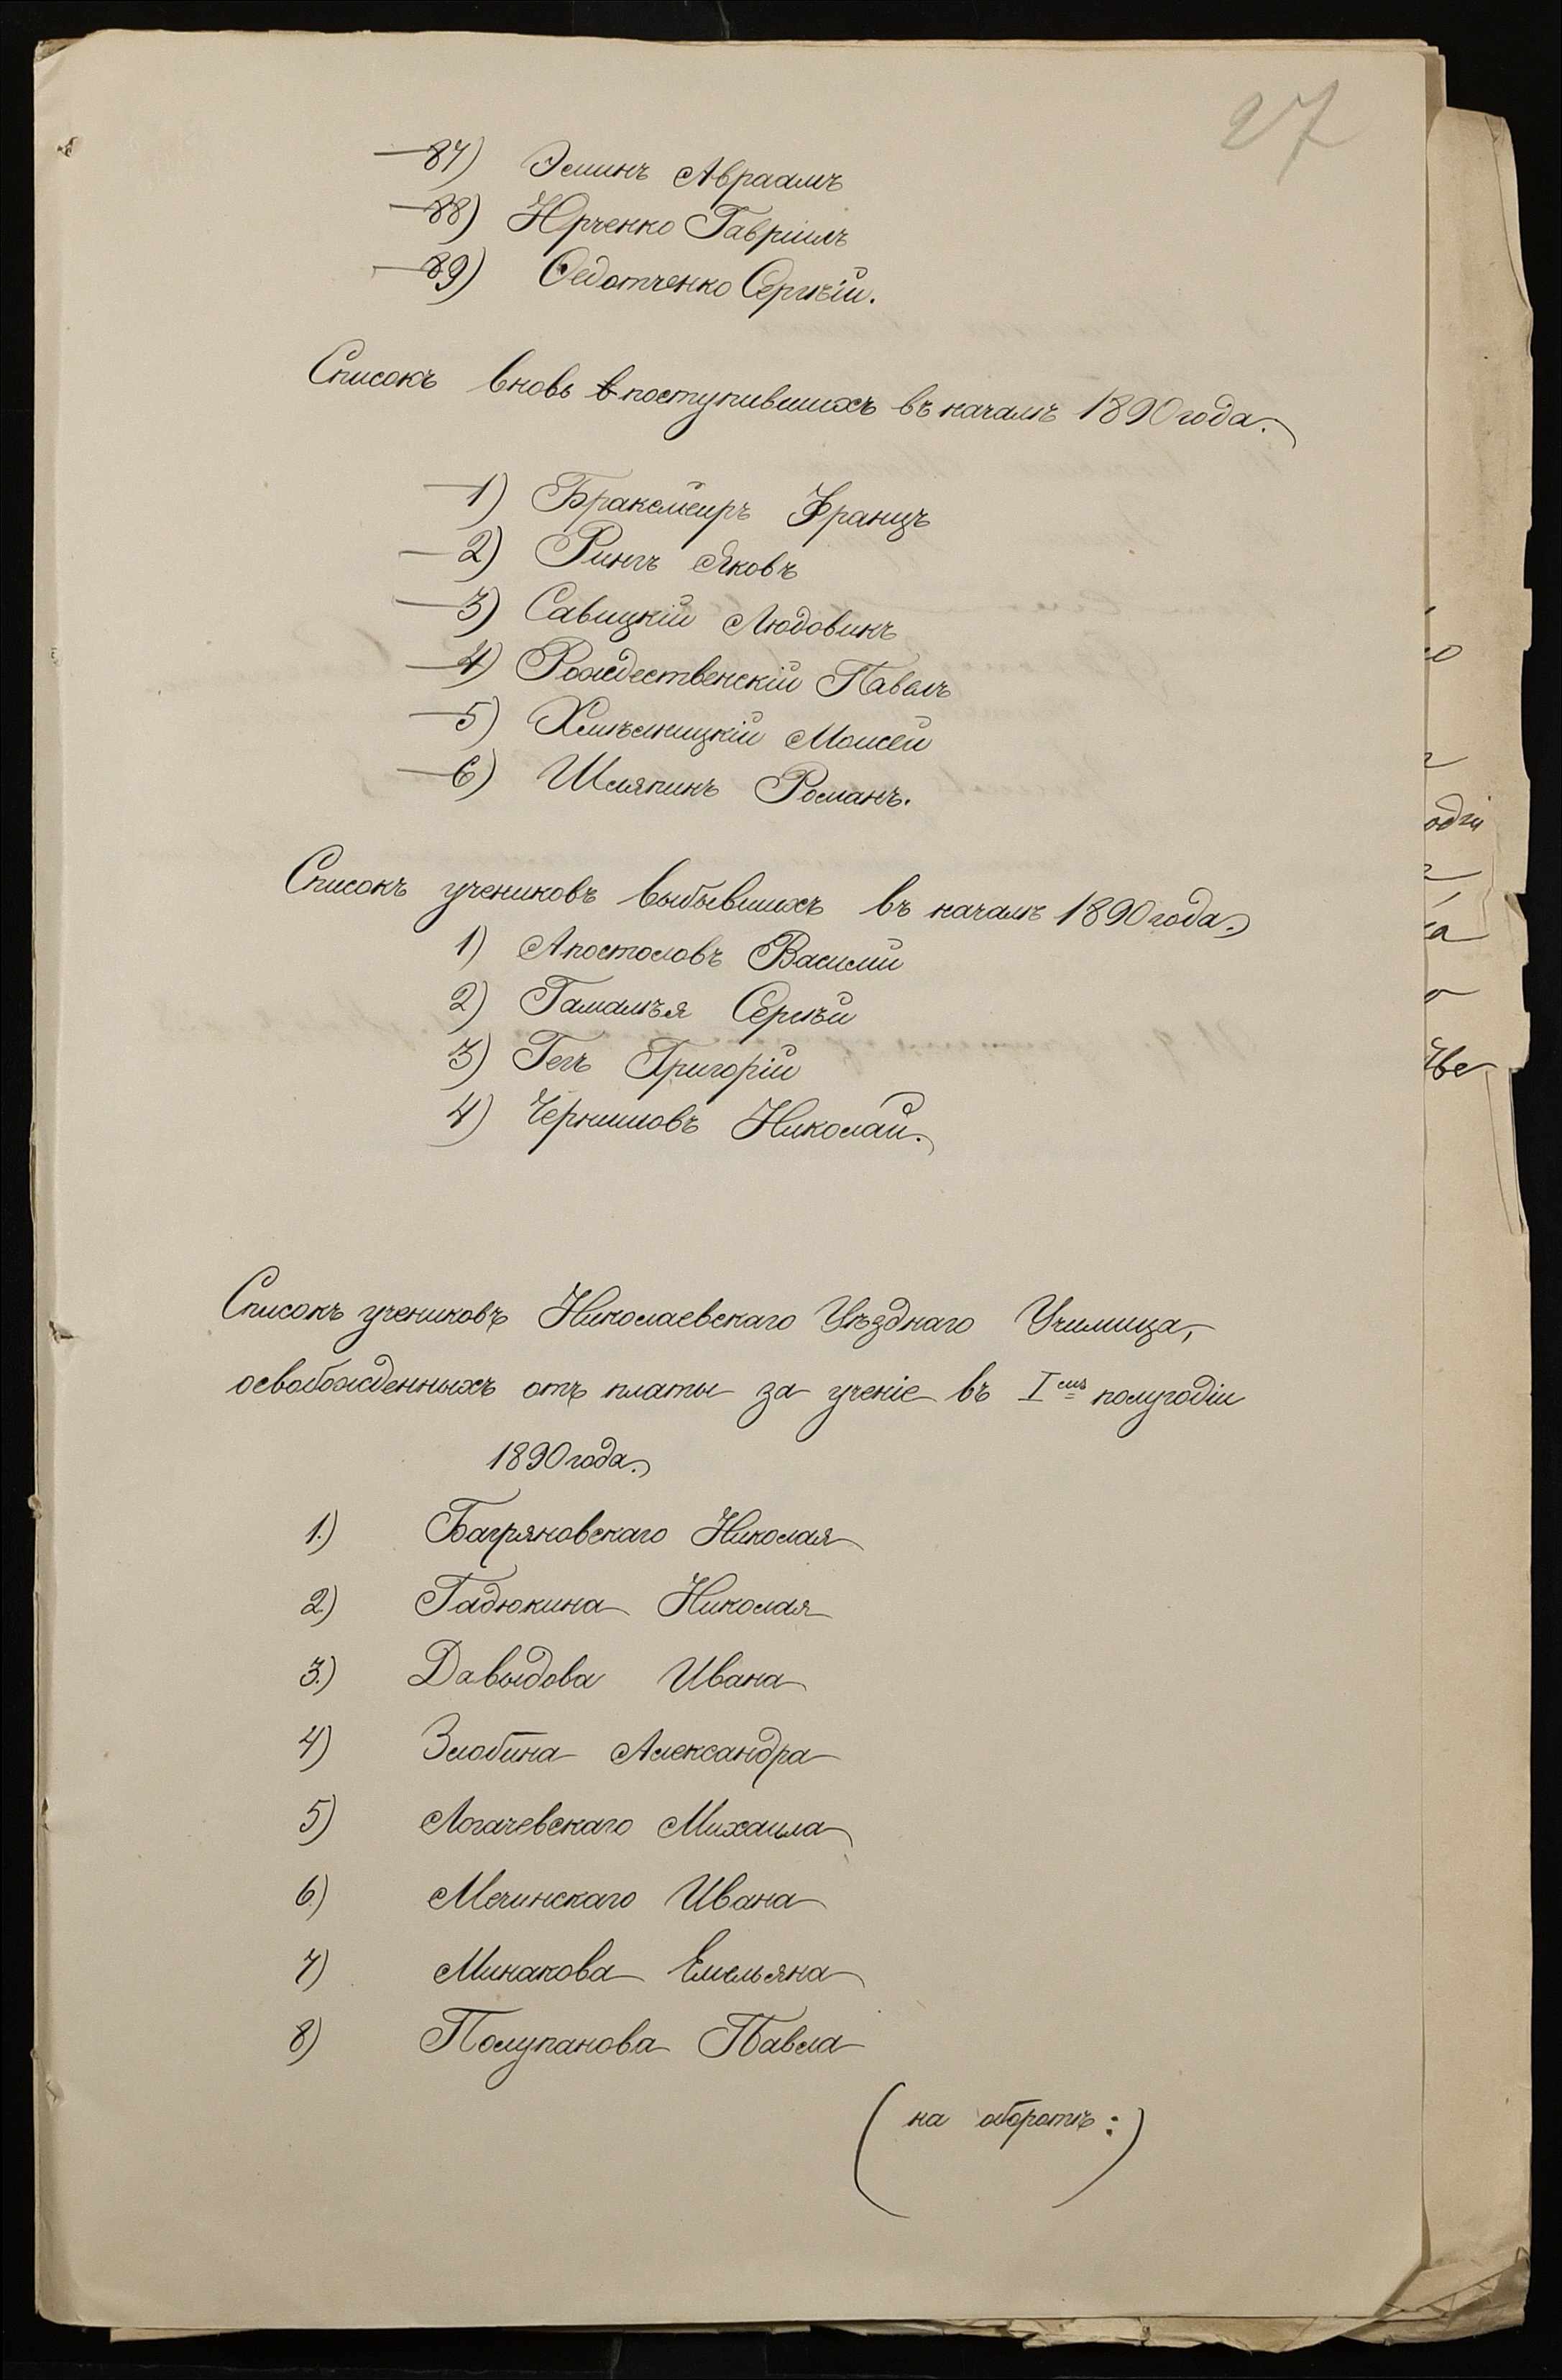 27
87) Эминъ Авраамъ
88) Юрченко Гавріилъ
89) Ѳедотченко Сергѣй.
Списокъ вновь поступившихъ въ началѣ 1890 года.
1) Браксмейръ Францъ
2) Рингъ Яковъ
3) Савицкій Людовикъ
4) Рождественскій Павелъ
5) Хмѣльницкій Моисей
6) Шляпинъ Романъ.
Списокъ учениковъ выбывшихъ въ началѣ 1890 года.
1) Апостоловъ Василій
2) Гамалѣя Сергѣй
3) Гегъ Григорій
4) Чернышовъ Николай.
Списокъ учениковъ Николаевскаго Уѣзднаго Училища,
освобожденныхъ отъ платы за ученіе въ Iмъ полугодіи
1890 года.
1.) Багряновскаго Николая
2.) Гадюкина Николая
3.) Давыдова Ивана
4) Злобина Александра
5) Логачевскаго Михаила
6.) Мечинскаго Ивана
7) Минакова Емельяна
8) Полупанова Павла
(на оборотѣ:)